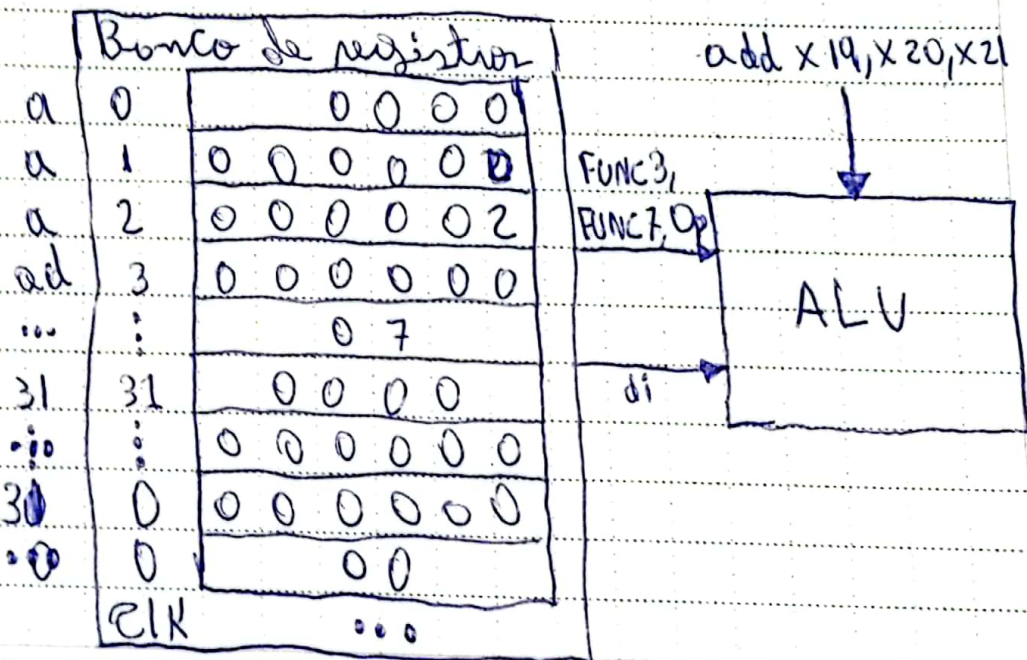 Banco de registros
add x19, x20, x21
a 0 0 0 0 0
a 1 0 0 0 0 0 0
a 2 0 0 0 0 0 2
ad 3 0 0 0 0 0 0
... ⋮ 0 7
31 31 0 0 0 0
⋮ 0 0 0 0 0 0
0 0 0 0 0 0 0
0 0 0 0
CLK ...
FUNC3,
FUNC7, Op
di
ALU